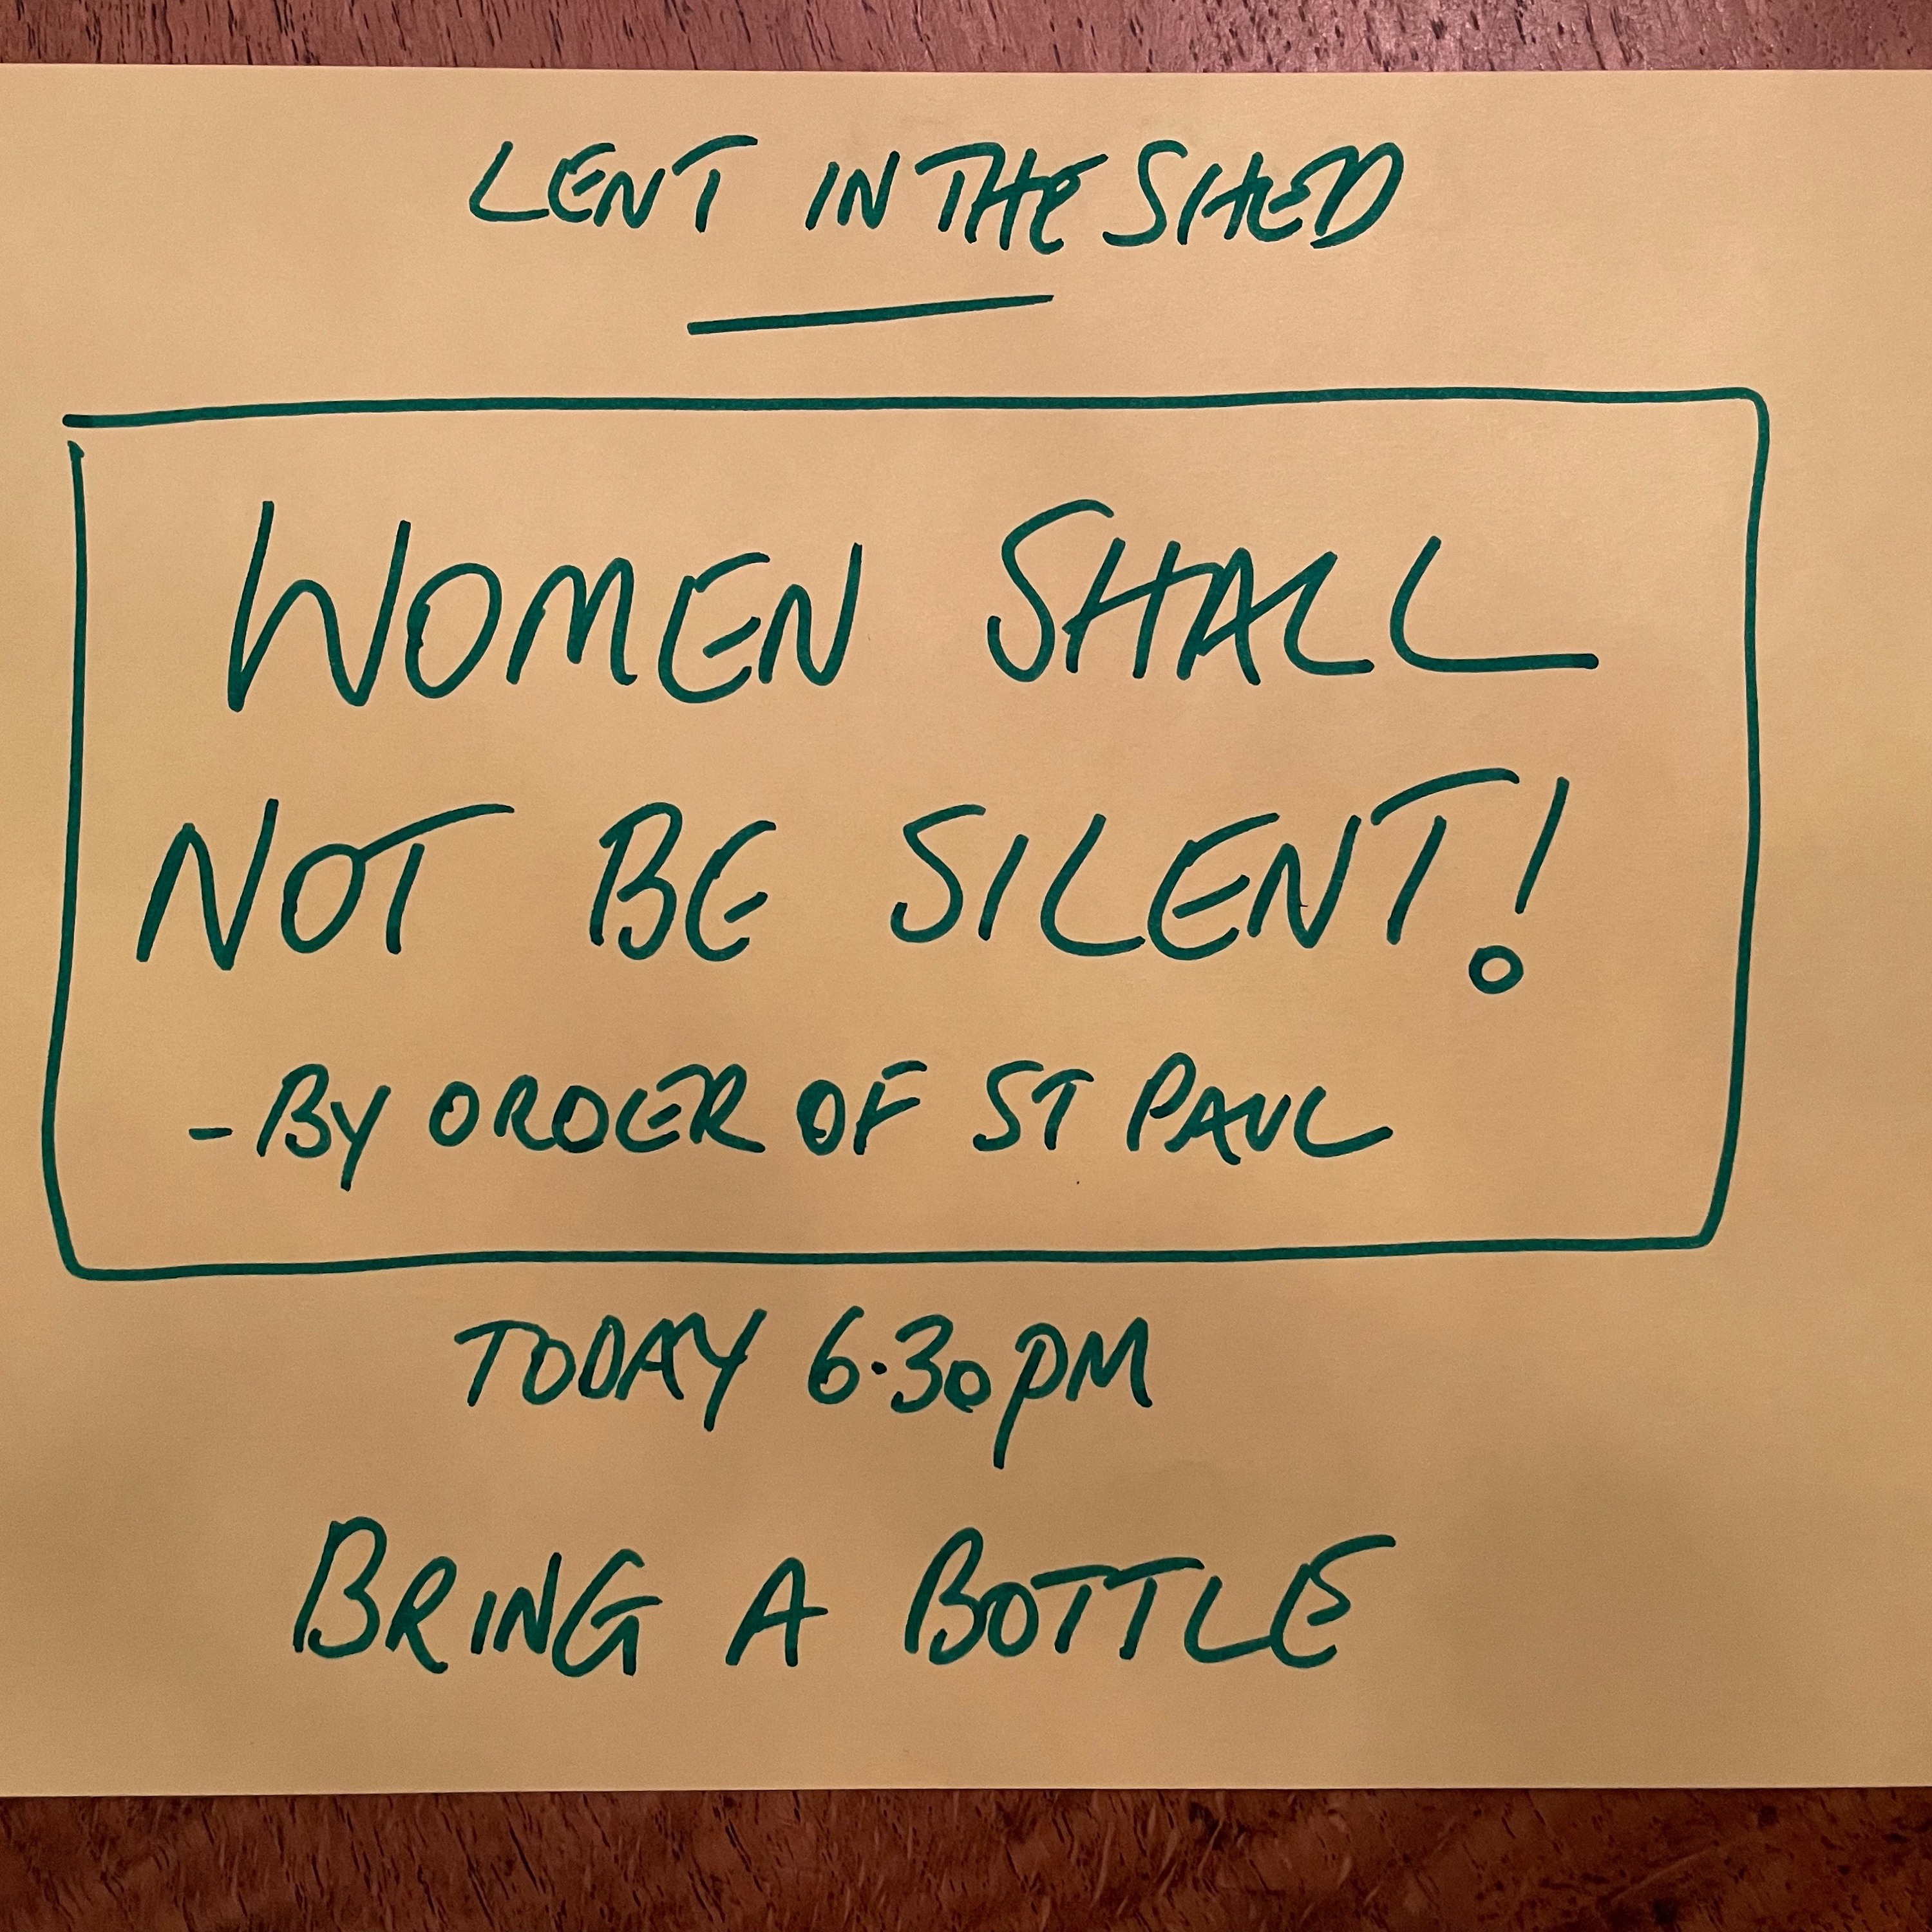 LENT IN THE SHED
WOMEN SHALL
NOT BE SILENT!
- BY ORDER OF ST PAUL
TODAY 6.30PM
BRING A BOTTLE